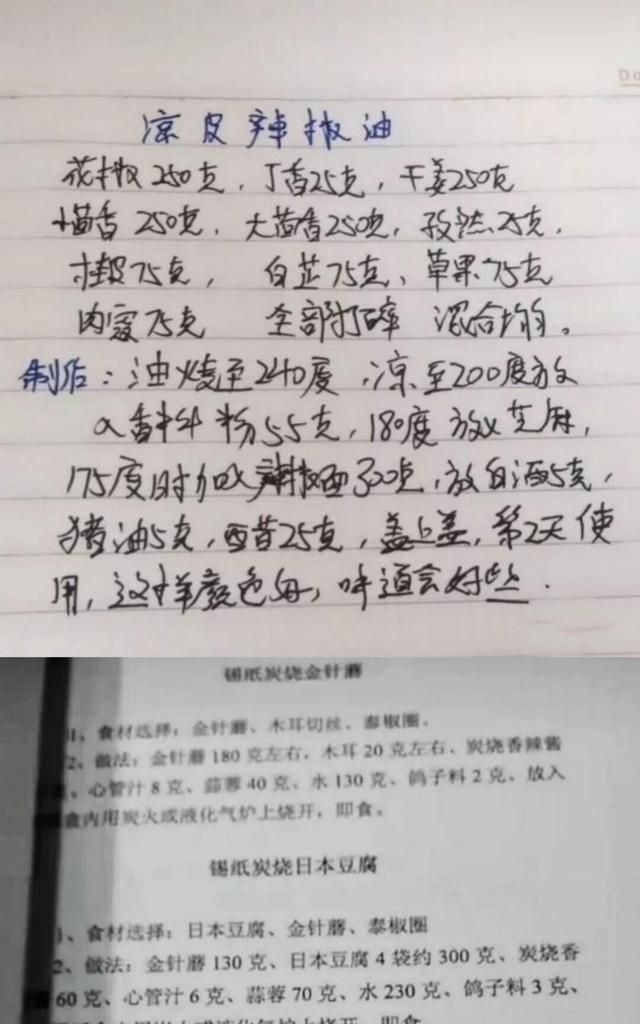 凉皮辣椒油
花椒250克，丁香25克，干姜250克
小茴香250克，大茴香250克，孜然25克，
寸 75克，白芷75克、草果75克
肉蔻75克 全部打碎 混合均匀。
制作：油烧至240度，凉至200度放
入香料粉55克，180度放入芝麻，
175度时加入辣椒面300克，放白酒5克，
猪油5克，25克，盖上盖，第2天使
用，这样颜色好，味道会好些．
锡纸炭烧金针蘑
1、食材选择：金针蘑、木耳切丝、泰椒圈。
2、做法：金针蘑180克左右，木耳20克左右，炭烧香辣酱
、心管汁8克、蒜蓉40克、水130克、鸽子料2克、放入
盒内用炭火或液化气炉上烧开，即食。
锡纸炭烧日本豆腐
1、食材选择：日本豆腐、金针蘑、泰椒圈
2、做法：金针蘑130克、日本豆腐4袋约300克、炭烧香
60克、心管汁6克、蒜蓉70克、水230克、鸽子料3克、
炭火或液化气炉上烧开，即食